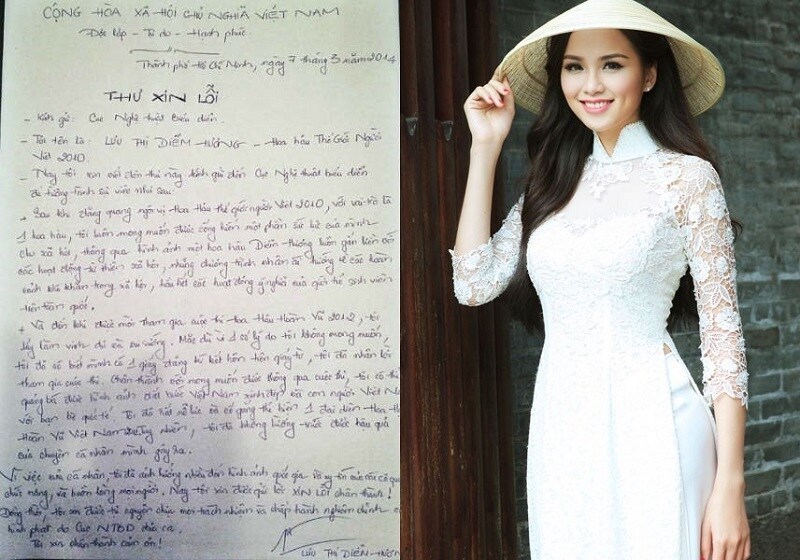 CỘNG HÒA XÃ HỘI CHỦ NGHĨA VIẾT NAM
Độc lập - Tự do - Hạnh phúc.
Thành phố Hồ Chí Minh, ngày 7 tháng 3 năm 2014
THƯ XIN LỖI
- Kính gửi: Cục Nghệ thuật Biểu diễn.
- Tôi tên là: LƯU THỊ DIỄM HƯƠNG - Hoa hậu Thế Giới Người
Việt 2010.
- Nay tôi xin viết đơn thư này kính gửi đến Cục Nghệ thuật biểu diễn
để tường trình sự việc như sau
+ Sau khi đăng quang ngôi vị Hoa Hậu thế giới người Việt 2010, với vai trò là
1 hoa hậu, tôi luôn mong muốn được cống hiến một phần sức bé của mình
cho xã hội, thông qua hình ảnh một hoa hậu Diễm Hương luôn gắn liền với
các hoạt động từ thiện xã hội, những chương trình nhân ái hướng về các hoàn
cảnh khó khăn trong xã hội, hầu hết các hoạt động ý nghĩa của giới trẻ sinh viên
trên toàn quốc.
+ Và đến khi được mời tham gia cuộc thi Hoa Hậu Hoàn Vũ 2012, tôi
lấy làm vinh dự và vui sướng. Mặc dù vì 1 số lý do tôi không mong muốn,
tôi đã có biết mình có 1 giấy đăng ký kết hôn trên giấy tờ, tôi đã nhận lời
tham gia cuộc thi. Chân thành với mong muốn được thông qua cuộc thi, tôi có thể
quảng bá được hình ảnh đất nước Việt Nam xinh đẹp và con người Việt Nam
với bạn bè quốc tế. Tôi đã hết nỗ lực và cố gắng thể hiện 1 đại diện Hoa Hậu
Hoàn Vũ Việt Nam tuy nhiên, tôi đã không lường trước được hậu quả
của chuyện cá nhân mình gây ra.
Vì việc của cá nhân, tôi đã ảnh hưởng nhiều đến hình ảnh quốc gia và uy tín của các cơ quan
chức năng, và buồn lòng mọi người. Nay tôi xin được gửi lời XIN LỖI chân thành!
Đồng thời, tôi xin được tự nguyện chịu mọi trách nhiệm và chấp hành nghiêm chỉnh
hình phạt do Cục NTBD đưa ra.
Tôi xin chân thành cảm ơn!
LƯU THỊ DIỄM HƯƠNG